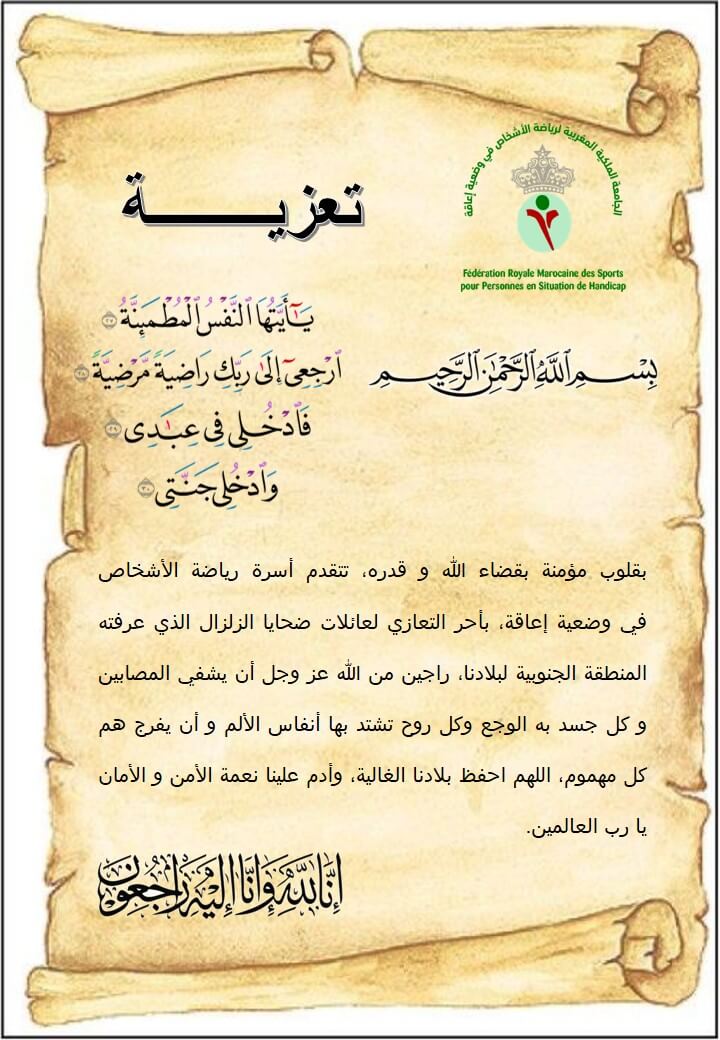 الجامعة الملكية المغربية لرياضة الأشخاص في وضعية إعاقة
Fédération Royale Marocaine des Sports
pour Personnes en Situation de Handicap
تعزيـــــــة
بِسْمِ ٱللَّهِ ٱلرَّحْمَٰنِ ٱلرَّحِيمِ
يَٰٓأَيَّتُهَا ٱلنَّفْسُ ٱلْمُطْمَئِنَّةُ ٢٧
ٱرْجِعِىٓ إِلَىٰ رَبِّكِ رَاضِيَةً مَّرْضِيَّةً ٢٨
فَٱدْخُلِى فِى عِبَٰدِى ٢٩
وَٱدْخُلِى جَنَّتِى ٣٠
بقلوب مؤمنة بقضاء الله و قدره، تتقدم أسرة رياضة الأشخاص
في وضعية إعاقة، بأحر التعازي لعائلات ضحايا الزلزال الذي عرفته
المنطقة الجنوبية لبلادنا، راجين من الله عز وجل أن يشفي المصابين
و كل جسد به الوجع وكل روح تشتد بها أنفاس الألم و أن يفرج هم
كل مهموم، اللهم احفظ بلادنا الغالية، وأدم علينا نعمة الأمن و الأمان
يا رب العالمين.
إِنَّا لِلَّهِ وَإِنَّا إِلَيْهِ رَاجِعُونَ